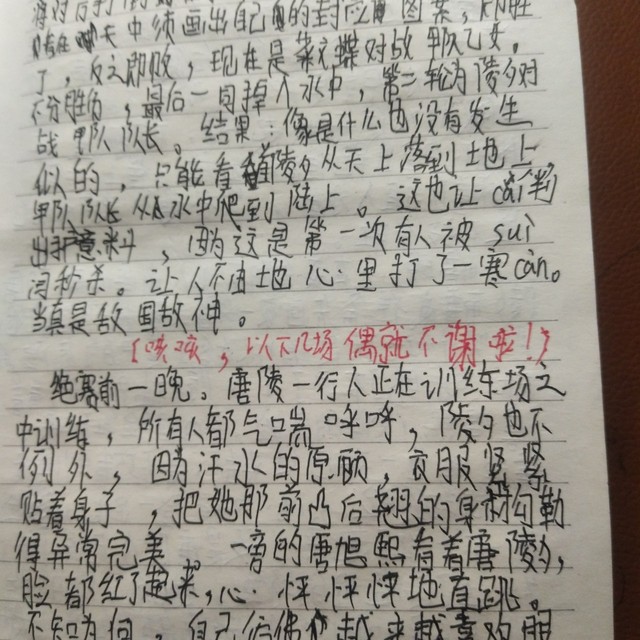 天中须画出自己的封应图案，
了，反之即败，现在是紫蝶对敌甲队乙女。
不分胜负，最后一同掉入水中，第二轮为陵夕对
战甲队队长。结果：像是什么也没有发生
似的，只能看陵夕从天上落到地上
甲队队长从水中爬到陆上。这也让cái判
出乎意料，因为这是第一次有人被suì
间秒杀。让人不由地心里打了一寒cán。
当真是敌国敌神。
（咳咳，以下几场偶就不谢啦！）
绝赛前一晚。唐陵一行人正在训练场之
中训练，所有人都气喘呼呼，陵夕也不
例外，因为汗水的原顾，衣服紧紧
贴着身子，把她那前凸后翘的身材勾勒
得异常完美。一旁的唐旭熙看着唐陵夕，
脸都红了起来，心怦怦怦地直跳。
不知为何，自己仿佛越来越喜欢跟